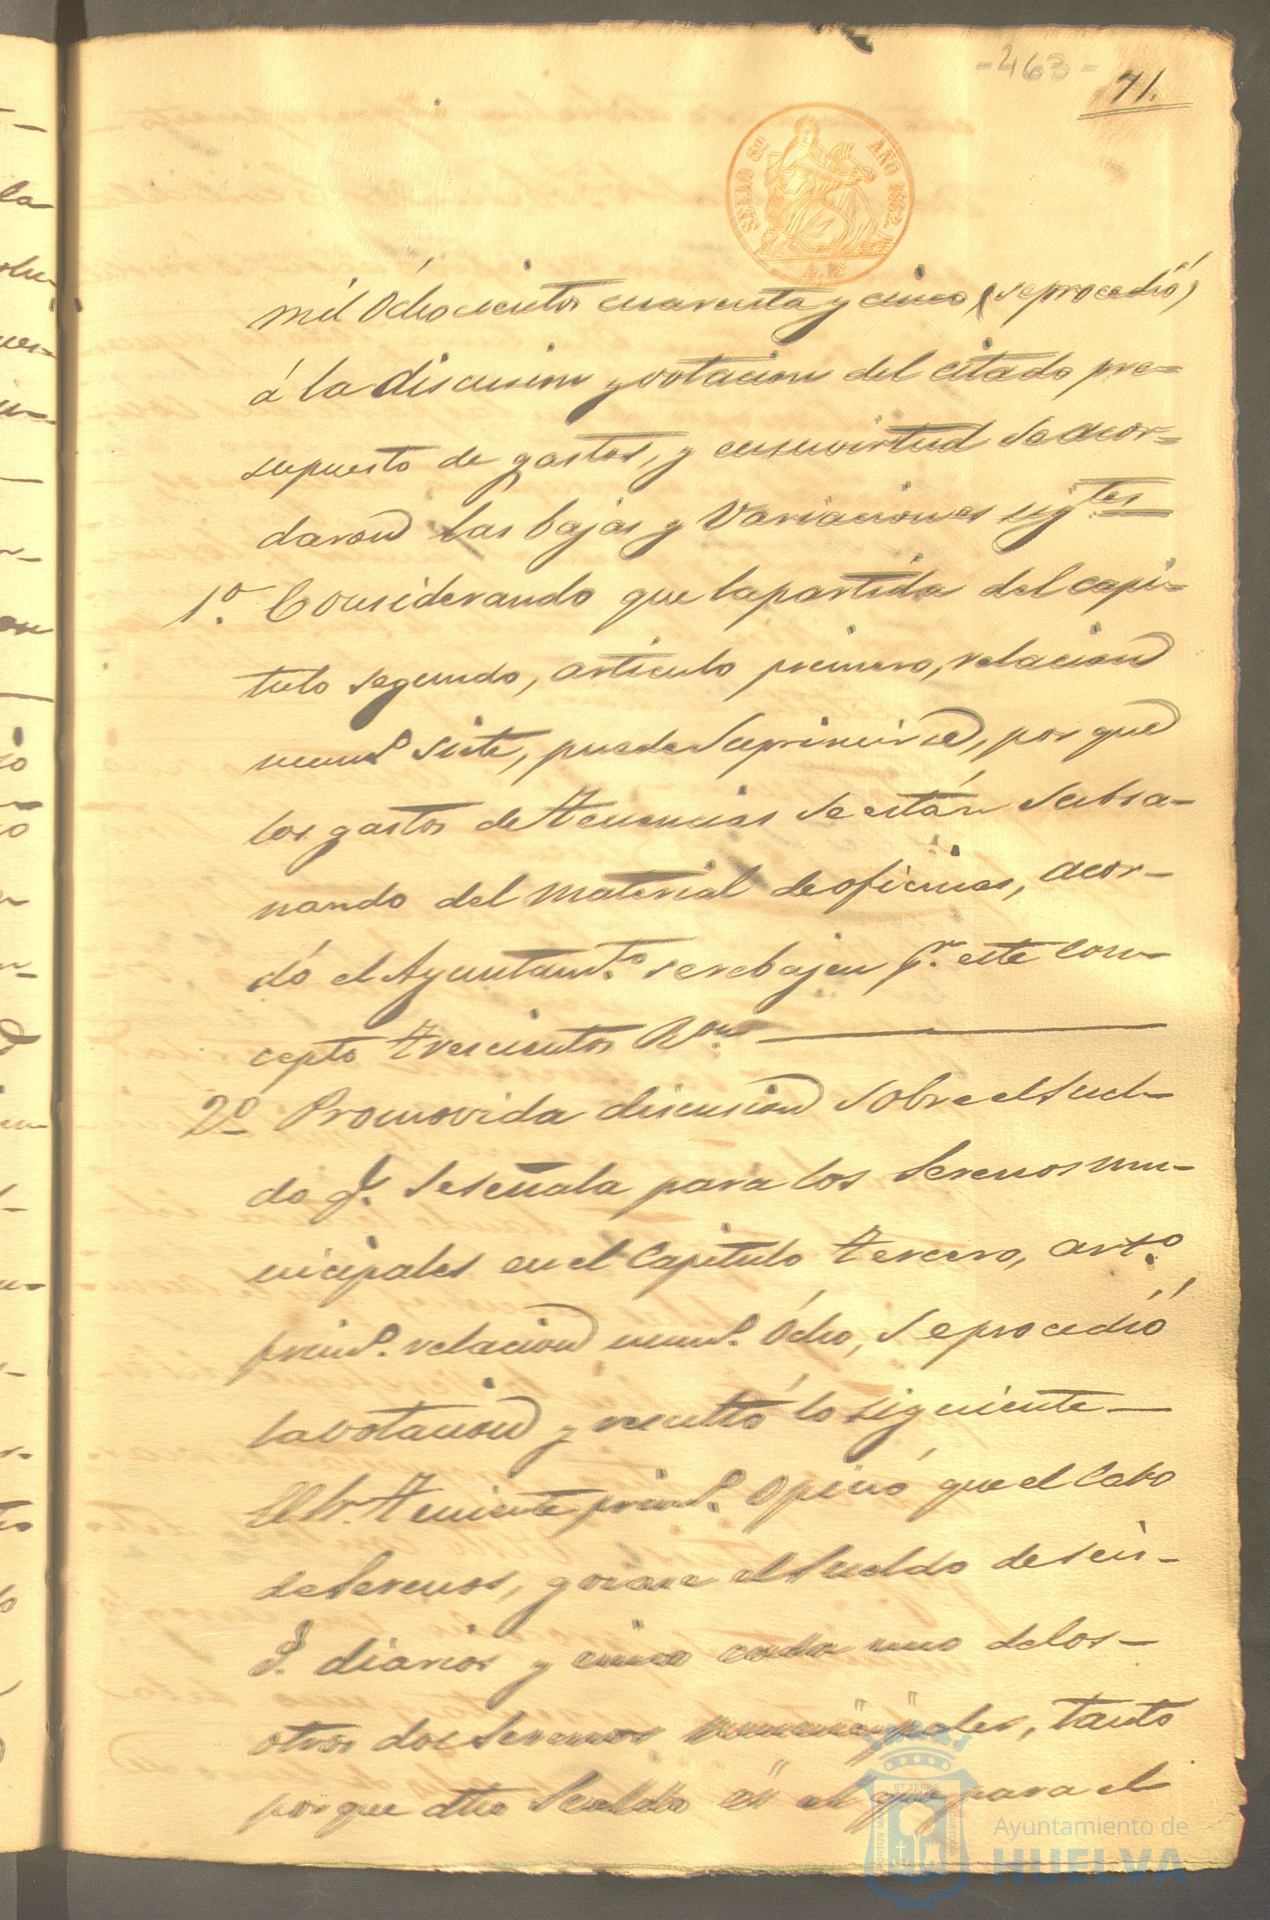 -463-
71.
SELLO 6º AÑO 1862.
mil Ochocientos cuarenta y cinco, (se procedió)
á la discusion y votacion del citado pre=
supuesto de gastos, y en su virtud se acor=
daron las bajas y Variaciones sigtes
1º. Considerando que la partida del capi=
tulo segundo, articulo primero, relacion
numo siete, puede Suprimirse, por que
los gastos de tenencias se están Subsa-
nando del material de oficinas, acor-
dó el Ayuntamto. se rebajen pr. este con-
cepto trescientos Ron
2º Promovida discusion sobre el suel-
do q. se señala para los Serenos mu-
nicipales en el Capitulo tercero, arto.
primo. relacion numo. Ocho, se procedió
la votacion y resultó lo siguiente
El Sr. teniente primo. Opinó que el Cabo
de Serenos, gozase el Sueldo de seis-
r. diarios y cinco cada uno de los-
otros dos Serenos municipales, tanto
porque dho Sueldo es el que para el
Ayuntamiento de
HUELVA